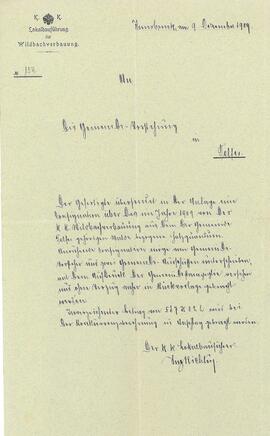 K. K.
Lokalbauführung
für
Wildbachverbauung.
Innsbruck am 9. Dezember 1909
№
An
Die Gemeinde-Vorstehung
in
Telfes
Der Gefertigte übersendet in der Anlage eine
Consignation über das im Jahre 1909 von der
K. K. Wildbachverbauung aus dem der Gemeinde
Telfes gehörigen Walde bezogene Holzquantum.
Consignation wolle vom Gemeinde-
Vorsteher und zwei Gemeinde-Ausschüssen unterschrieben,
mit dem der Gemeinde versehen
und ohne Verzug anher in Rückvorlage gebracht
werden.
Betrag von 557 K 22 h wird bei
der in Abzug gebracht werden.
Der K. K. Lokalbauführer
Ing.